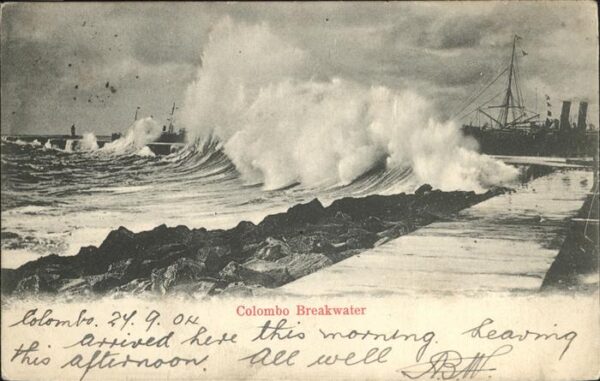 Colombo Breakwater
Colombo. 24. 9. 04
Arrived here this morning. Leaving
this afternoon. All well